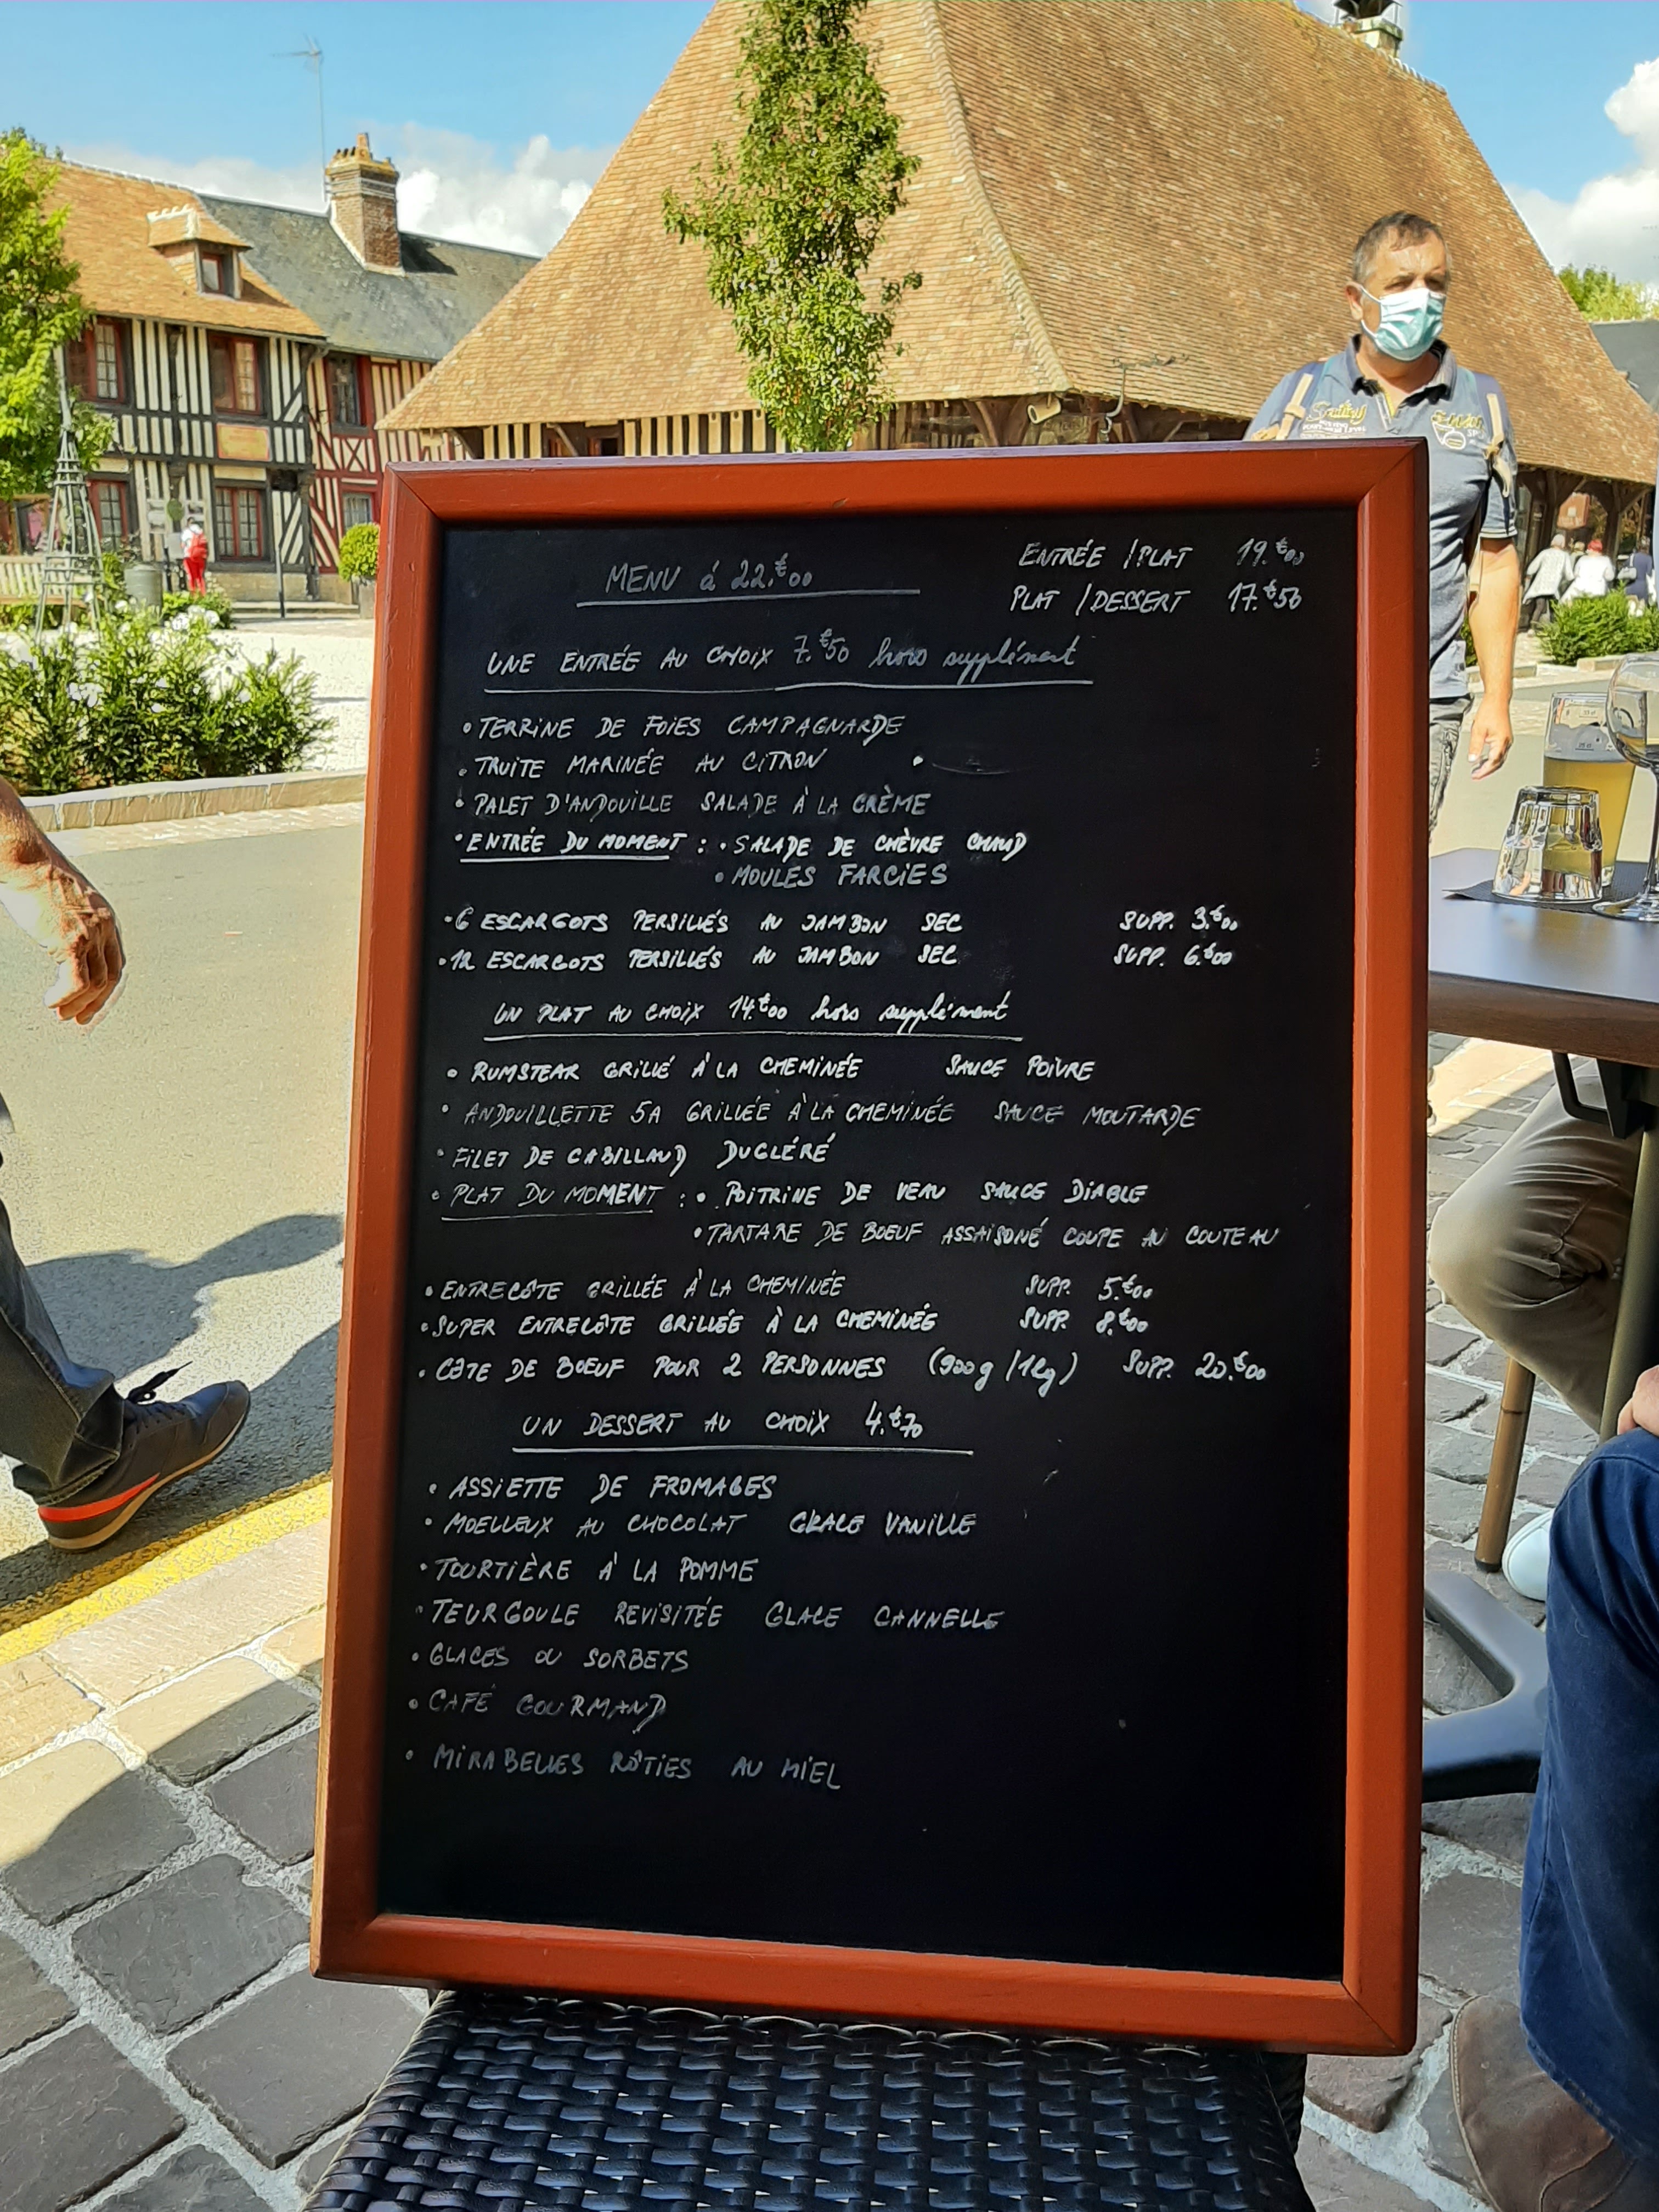 MENU á 22.€00
ENTRÉE / PLAT 19.€00
PLAT / DESSERT 17.€50
UNE ENTRÉE AU CHOIX 7.€50 hors supplément
• TERRINE DE FOIES CAMPAGNARDE
• TRUITE MARINÉE AU CITRON •
• PALET D'ANDOUILLE SALADE À LA CRÈME
• ENTRÉE DU MOMENT : • SALADE DE CHÈVRE CHAUD
• MOULES FARCIES
• 6 ESCARGOTS PERSILLÉS AU JAMBON SEC SUPP. 3.€00
• 12 ESCARGOTS PERSILLÉS AU JAMBON SEC SUPP. 6.€00
UN PLAT AU CHOIX 14.€00 hors supplément
• RUMSTEAK GRILLÉ À LA CHEMINÉE SAUCE POIVRE
• ANDOUILLETTE 5A GRILLÉE À LA CHEMINÉE SAUCE MOUTARDE
• FILET DE CABILLAUD DUGLÉRÉ
• PLAT DU MOMENT : • POITRINE DE VEAU SAUCE DIABLE
• TARTARE DE BOEUF ASSAISONÉ COUPE AU COUTEAU
• ENTRECÔTE GRILLÉE À LA CHEMINÉE SUPP. 5.€00
• SUPER ENTRECÔTE GRILLÉE À LA CHEMINÉE SUPP 8.€00
• CÔTE DE BOEUF POUR 2 PERSONNES (900g/1kg) SUPP. 20.€00
UN DESSERT AU CHOIX 4.€70
• ASSIETTE DE FROMAGES
• MOELLEUX AU CHOCOLAT GLACE VANILLE
• TOURTIÈRE À LA POMME
• TEURGOULE REVISITÉE GLACE CANNELLE
• GLACES OU SORBETS
• CAFÉ GOURMAND
• MIRABELLES RÔTIES AU MIEL